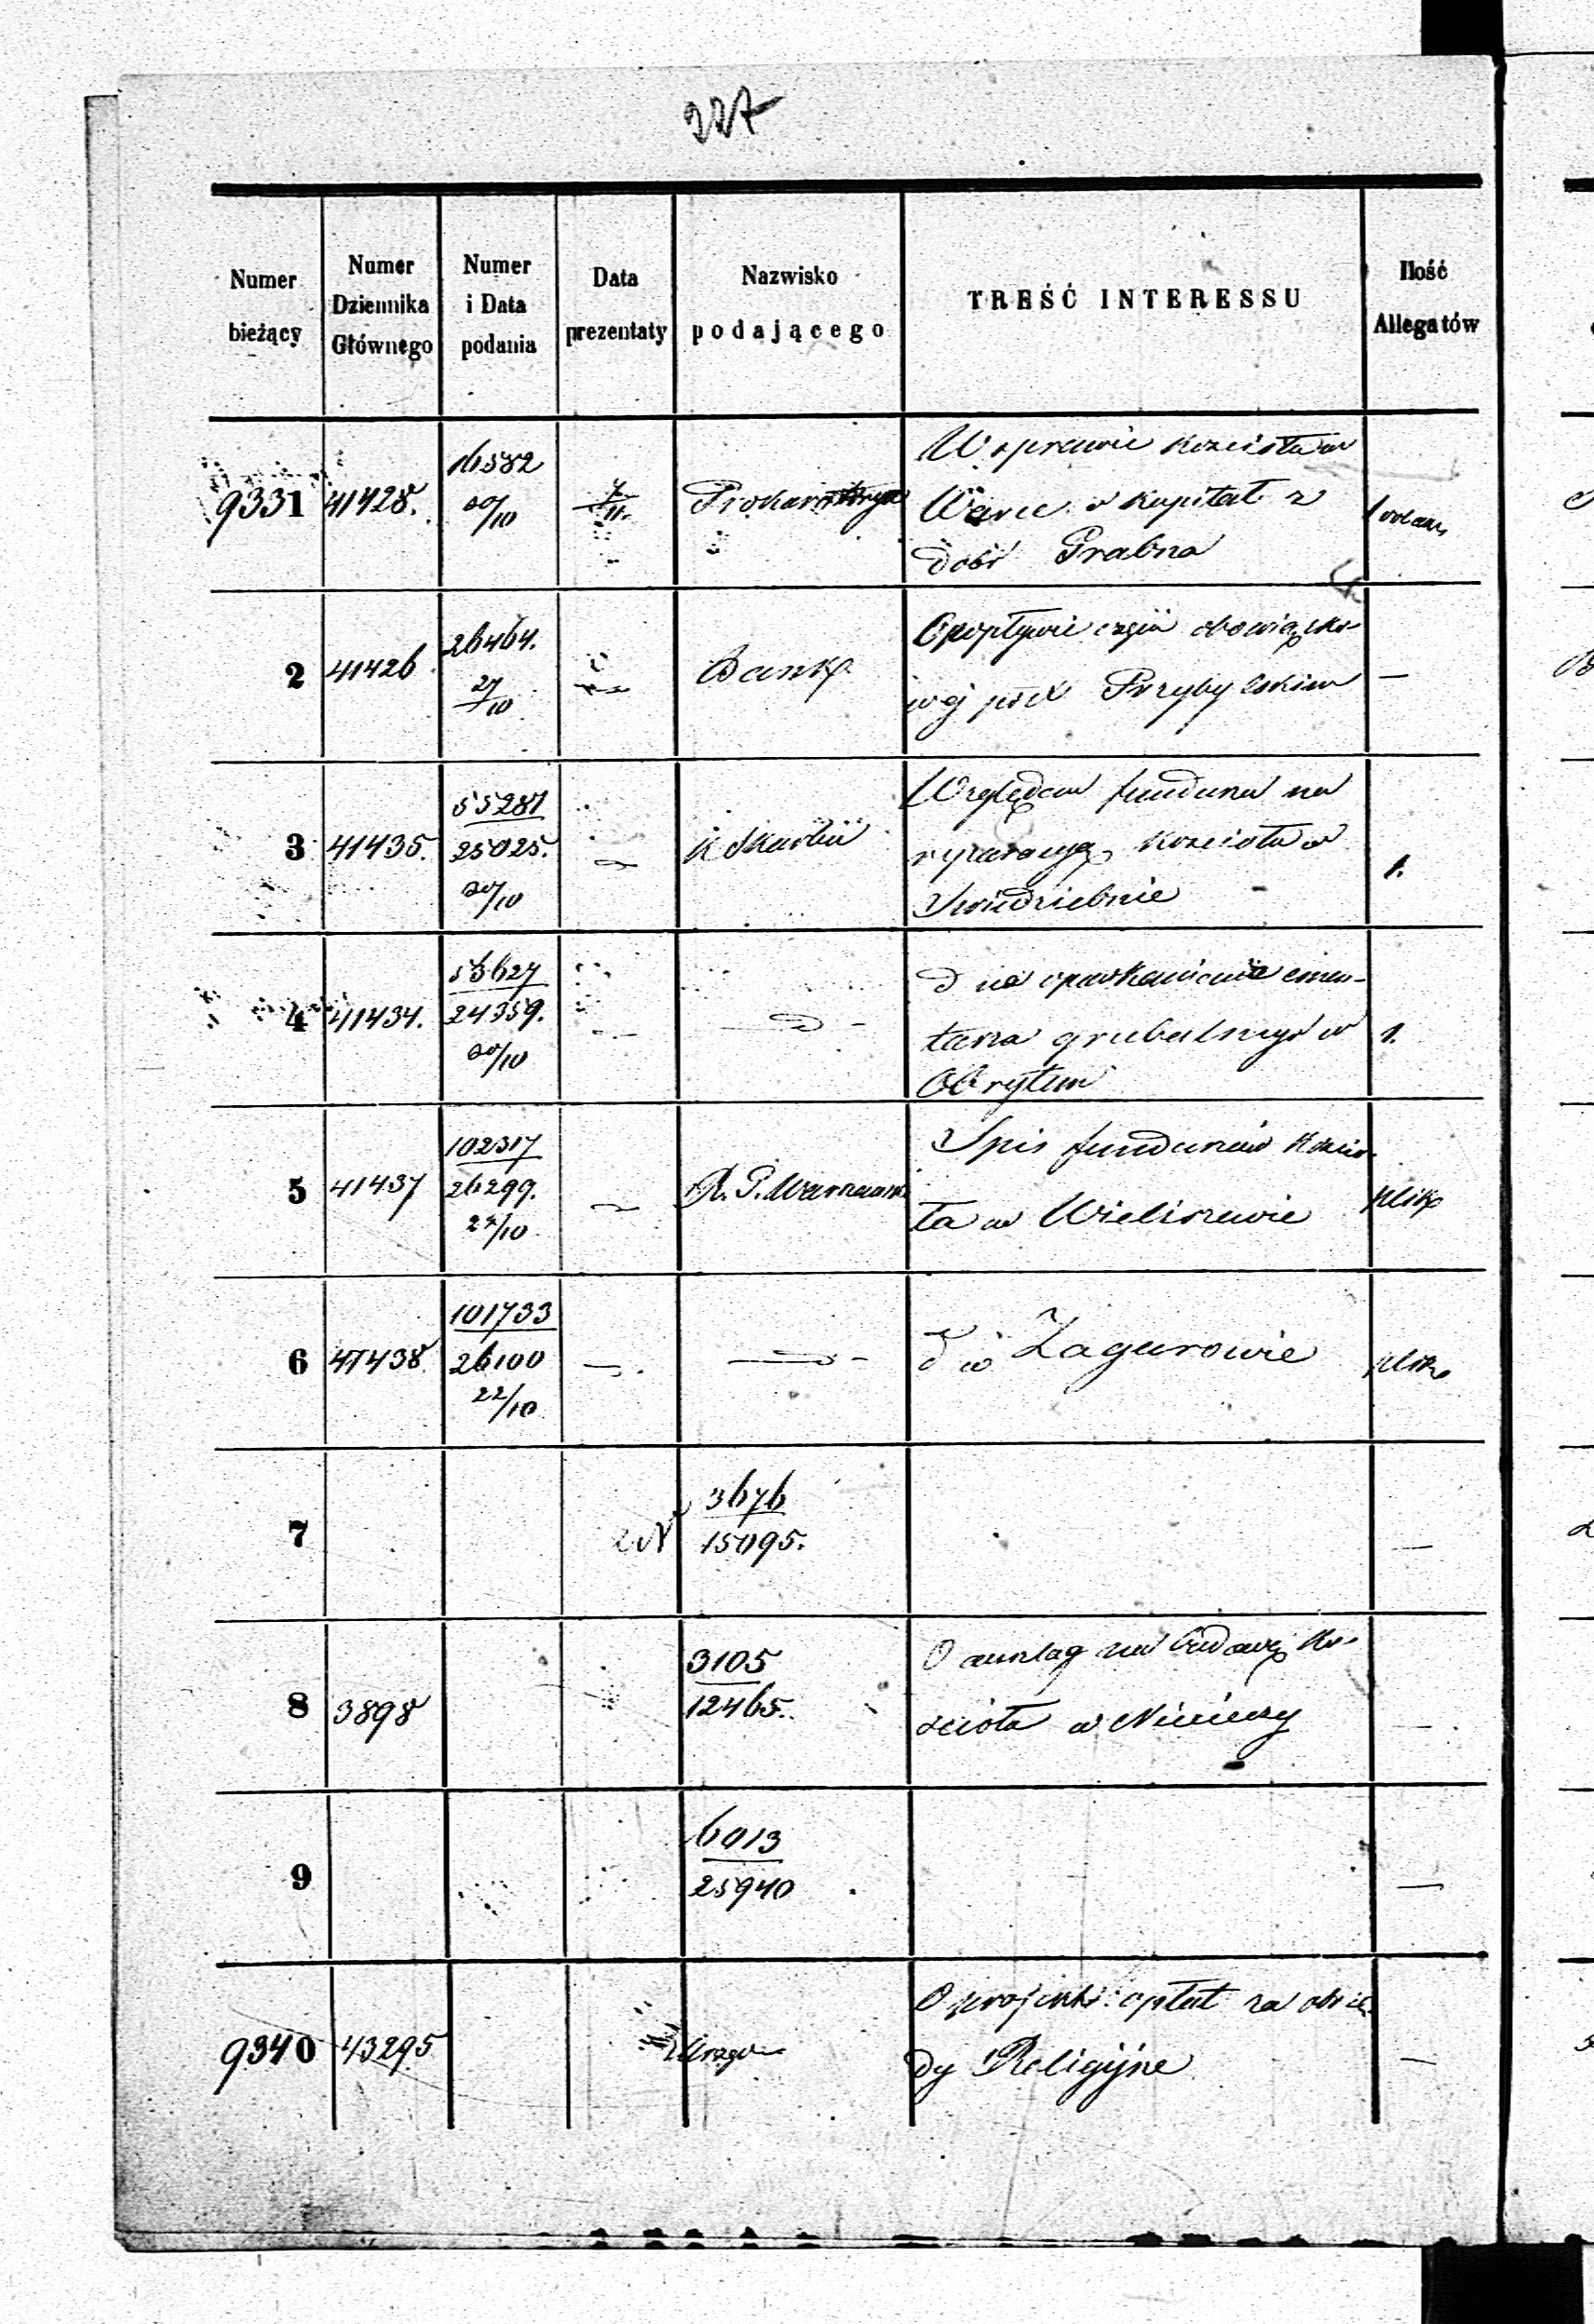 227
Numer bieżący
Numer Dziennika Głównego
Numer i Data podania
Data prezentaty
Nazwisko podającego
TREŚĆ INTERESSU
Ilość Allegatów
9331 41428. 16582 20/10 7/11. W sprawie kościoła w
Warce o kapitał z
dóbr Grabna
2 41426 26464. 27/10 Bank
części obowiązko-
wej pod Przybylskim —
3 41435. 55287 25025. 20/10 K Skarbu Względem funduszu na
reparacyą kościoła w
Swiedziebnie 1.
4 41434. 53627 24359. 20/10 d na oparkanienie cmen-
tarza grzebalnego w 1.
Obrytem
5 41437 102317 26299. 27/10 R. G. Warszaws Spis funduszów kościo-
ła w Wieliszewie plik
6 41438. 101733 26100 22/10 d w Zagurowie plik
7 3676 15095. —
8 3898 3105 12465. O anszlag na budowę ko-
ścioła w —
9 6013 25940 —
9340 43295 Urzęd O projekt opłat za obrzę-
dy Religijne —